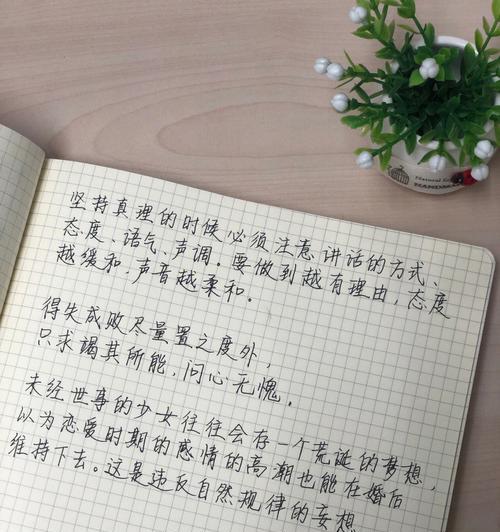 坚持真理的时候必须注意讲话的方式、
态度、语气、声调。要做到越有理由，态度
越缓和，声音越柔和。
得失成败尽量置之度外，
只求竭其所能，问心无愧。
未经世事的少女往往会存一个荒诞的梦想，
以为恋爱时期的感情的高潮也能在婚后
维持下去。这是违反自然规律的妄想
Natural
HANDMADE